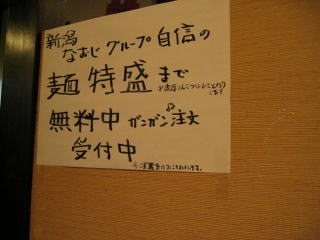 新潟
なおじグループ自信の
麺特盛まで
無料中ガンガン注文
受付中